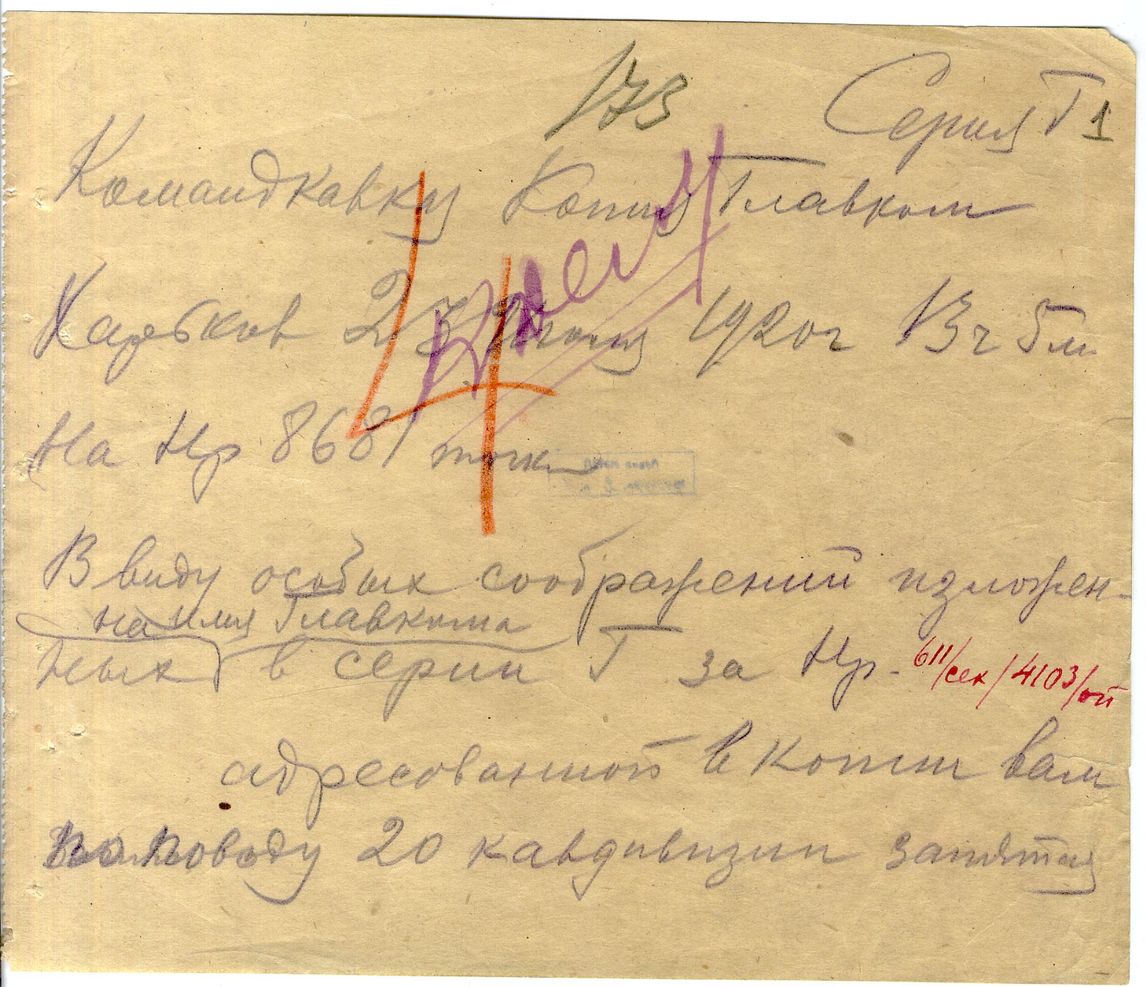 173
Серия Г 1
Командкавку Копия Главком
Харьков 23 Июня 1920г 13ч 5м
На Нр 8681 точка
В виду особых соображений изложен-
на имя Главкома
ных в серии Г за Нр - 611/сек/4103/оп
адресованной в копии вам
по поводу 20 кавдивизии запятая